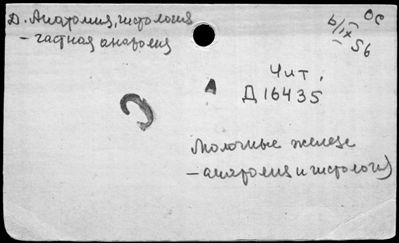 Д. Анатомия, гистология
– частная анатомия
Чит.
Д 16435
Молочные железы
– анатомия и гистология)